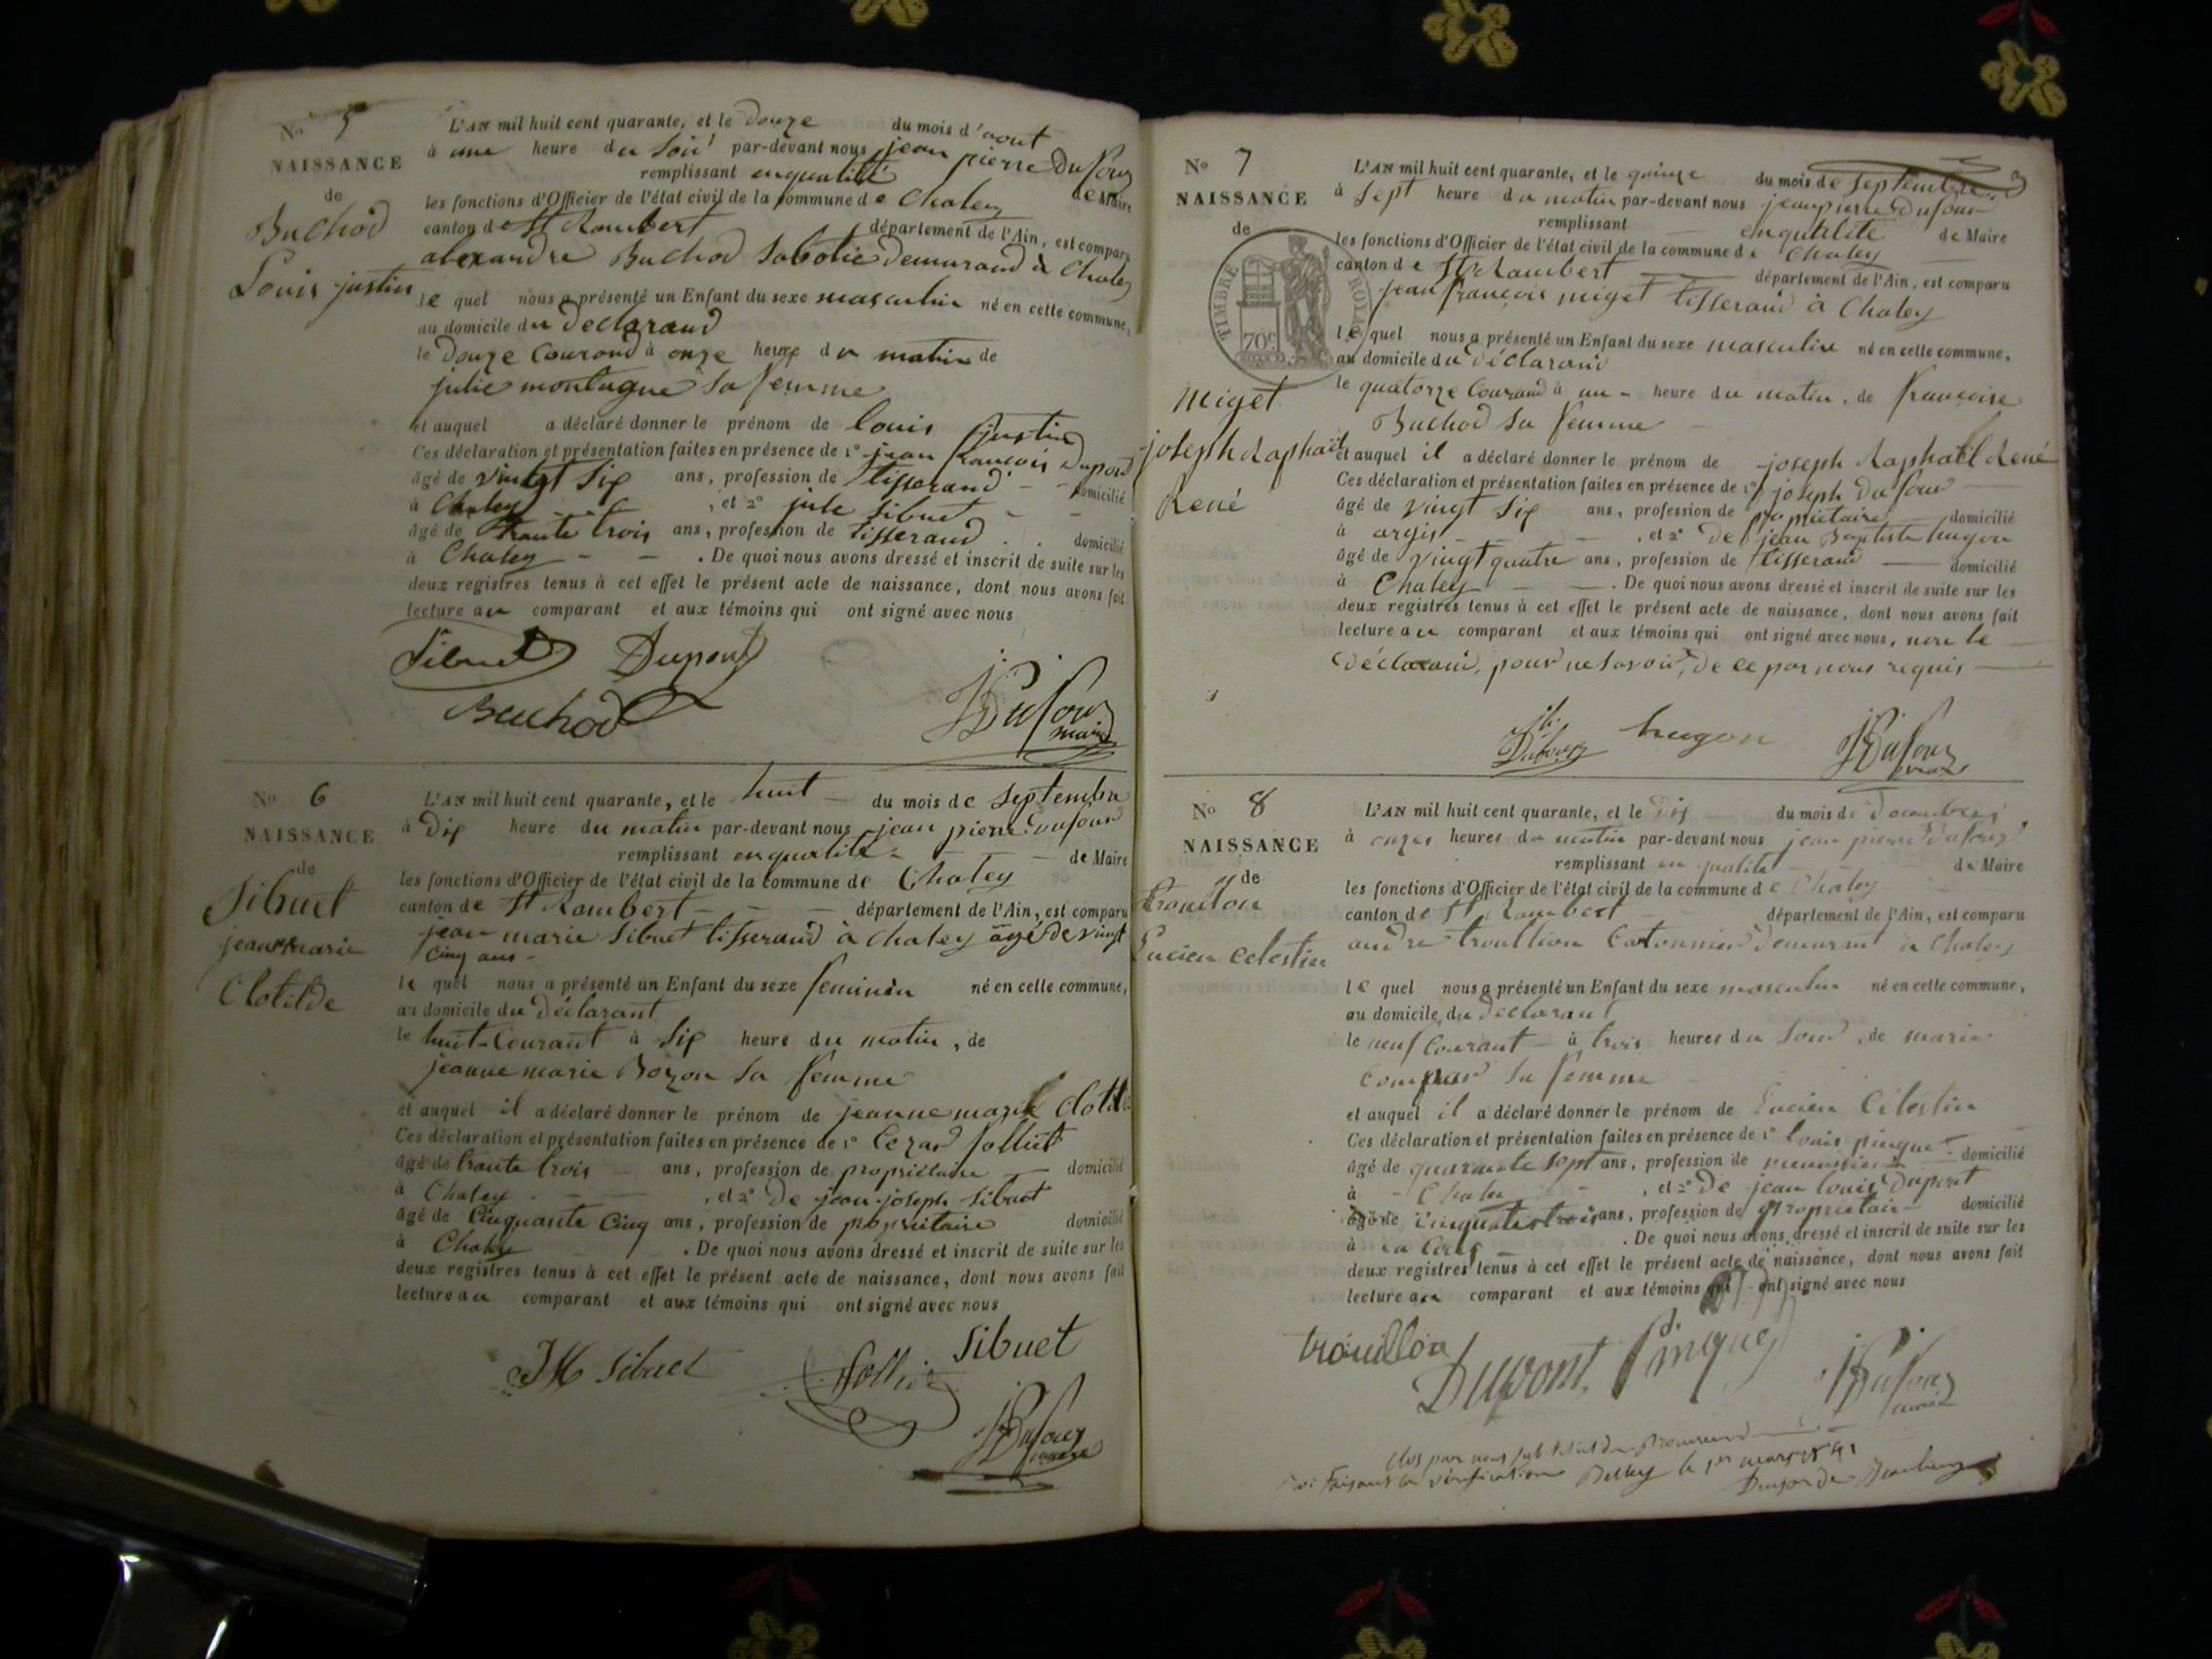 No 5
NAISSANCE
de
Buchod
Louis justin
L'AN mil huit cent quarante, et le Douze du mois d'aout
à une heure du Soir par-devant nous jean pierre Dufour
remplissant enqualité de Maire
les fonctions d'Officier de l'état civil de la commune de Chaley
canton de St Rambert département de l'Ain, est comparu
alexandre Buchod Sabotié Demurand à Chaley
le quel nous a présenté un Enfant du sexe masculin né en cette commune,
au domicile du Declarand
le Douze Courand à onze heure du matin de
julie montagne Sa femme
et auquel a déclaré donner le prénom de louis justin
Ces déclaration et présentation faites en présence de 1° jean francois Dupond
âgé de vingt Six ans, profession de tisserand domicilié
à Chaley, et 2° jule Sibuet
âgé de trante trois ans, profession de tisserand domicilié
à Chaley . De quoi nous avons dressé et inscrit de suite sur les
deux registres tenus à cet effet le présent acte de naissance, dont nous avons fait
lecture au comparant et aux témoins qui ont signé avec nous
Sibuet Dupond
Buchod
JPDufour
maire
No 6
NAISSANCE
de
Sibuet
jeanne marie
Clotilde
L'AN mil huit cent quarante, et le huit du mois de Septembre
à Dix heure du matin par-devant nous jean pierre Dufour
remplissant enqualité de Maire
les fonctions d'Officier de l'état civil de la commune de Chaley
canton de St Rambert département de l'Ain, est comparu
jean marie Sibuet tisserand à Chaley âgé de vingt
Cinq ans
le quel nous a présenté un Enfant du sexe feminin né en cette commune,
au domicile du Déclarant
le huit Courant à Six heure du matin, de
jeanne marie Bozon Sa femme
et auquel il a déclaré donner le prénom de jeanne marie Clotilde
Ces déclaration et présentation faites en présence de 1° Cezar Jolliet
âgé de trante trois ans, profession de propriétaire domicilié
à Chaley, et 2° De jean joseph Sibuet
âgé de Cinquante Cinq ans, profession de propriétaire domicilié
à Chaley . De quoi nous avons dressé et inscrit de suite sur les
deux registres tenus à cet effet le présent acte de naissance, dont nous avons fait
lecture au comparant et aux témoins qui ont signé avec nous
JM Sibuet Sibuet
JPDufour
maire
No 7
NAISSANCE
de
TIMBRE ROYAL
70c
Miget
joseph Raphaël
René
L'AN mil huit cent quarante, et le quinze du mois de Septembre
à Sept heure du matin par-devant nous jean pierre Dufour
remplissant enqualité de Maire
les fonctions d'Officier de l'état civil de la commune de Chaley
canton de St Rambert département de l'Ain, est comparu
jean françois miget tisserand à Chaley
le quel nous a présenté un Enfant du sexe masculin né en cette commune,
au domicile du Déclarand
le quatorze Courand à un heure du matin, de françoise
Buchod Sa femme
et auquel il a déclaré donner le prénom de joseph Raphaël René
Ces déclaration et présentation faites en présence de 1° joseph Dufour
âgé de vingt Six ans, profession de propriétaire domicilié
à argis, et 2° De jean Baptiste hugon
âgé de vingt quatre ans, profession de tisserand domicilié
à Chaley . De quoi nous avons dressé et inscrit de suite sur les
deux registres tenus à cet effet le présent acte de naissance, dont nous avons fait
lecture au comparant et aux témoins qui ont signé avec nous, non le
Déclarand, pour ne Savoir, De ce par nous requis
Dufour hugon JPDufour
maire
No 8
NAISSANCE
de
Trouillon
Lucien Celestin
L'AN mil huit cent quarante, et le Dix du mois de Decembre
à onzes heures du matin par-devant nous jean pierre Dufour
remplissant en qualité de Maire
les fonctions d'Officier de l'état civil de la commune de Chaley
canton de St Rambert département de l'Ain, est comparu
andre trouillon Cantonnier Demeurant à Chaley
le quel nous a présenté un Enfant du sexe masculin né en cette commune,
au domicile du Déclarant
le neuf Courant à trois heures du Soir, de marie
Sa femme
et auquel il a déclaré donner le prénom de Lucien Célestin
Ces déclaration et présentation faites en présence de 1° louis pingue
âgé de quarante Sept ans, profession de menuisier domicilié
à Chaley, et 2° De jean louis Dupont
âgé de Cinquante trois ans, profession de propriétaire domicilié
à . De quoi nous avons dressé et inscrit de suite sur les
deux registres tenus à cet effet le présent acte de naissance, dont nous avons fait
lecture au comparant et aux témoins qui ont signé avec nous
trouillon Dupont Pingue JPDufour
maire
Clos par nous Substitut du Procureur
Faisant la vérification Belley le 1er mars 1841